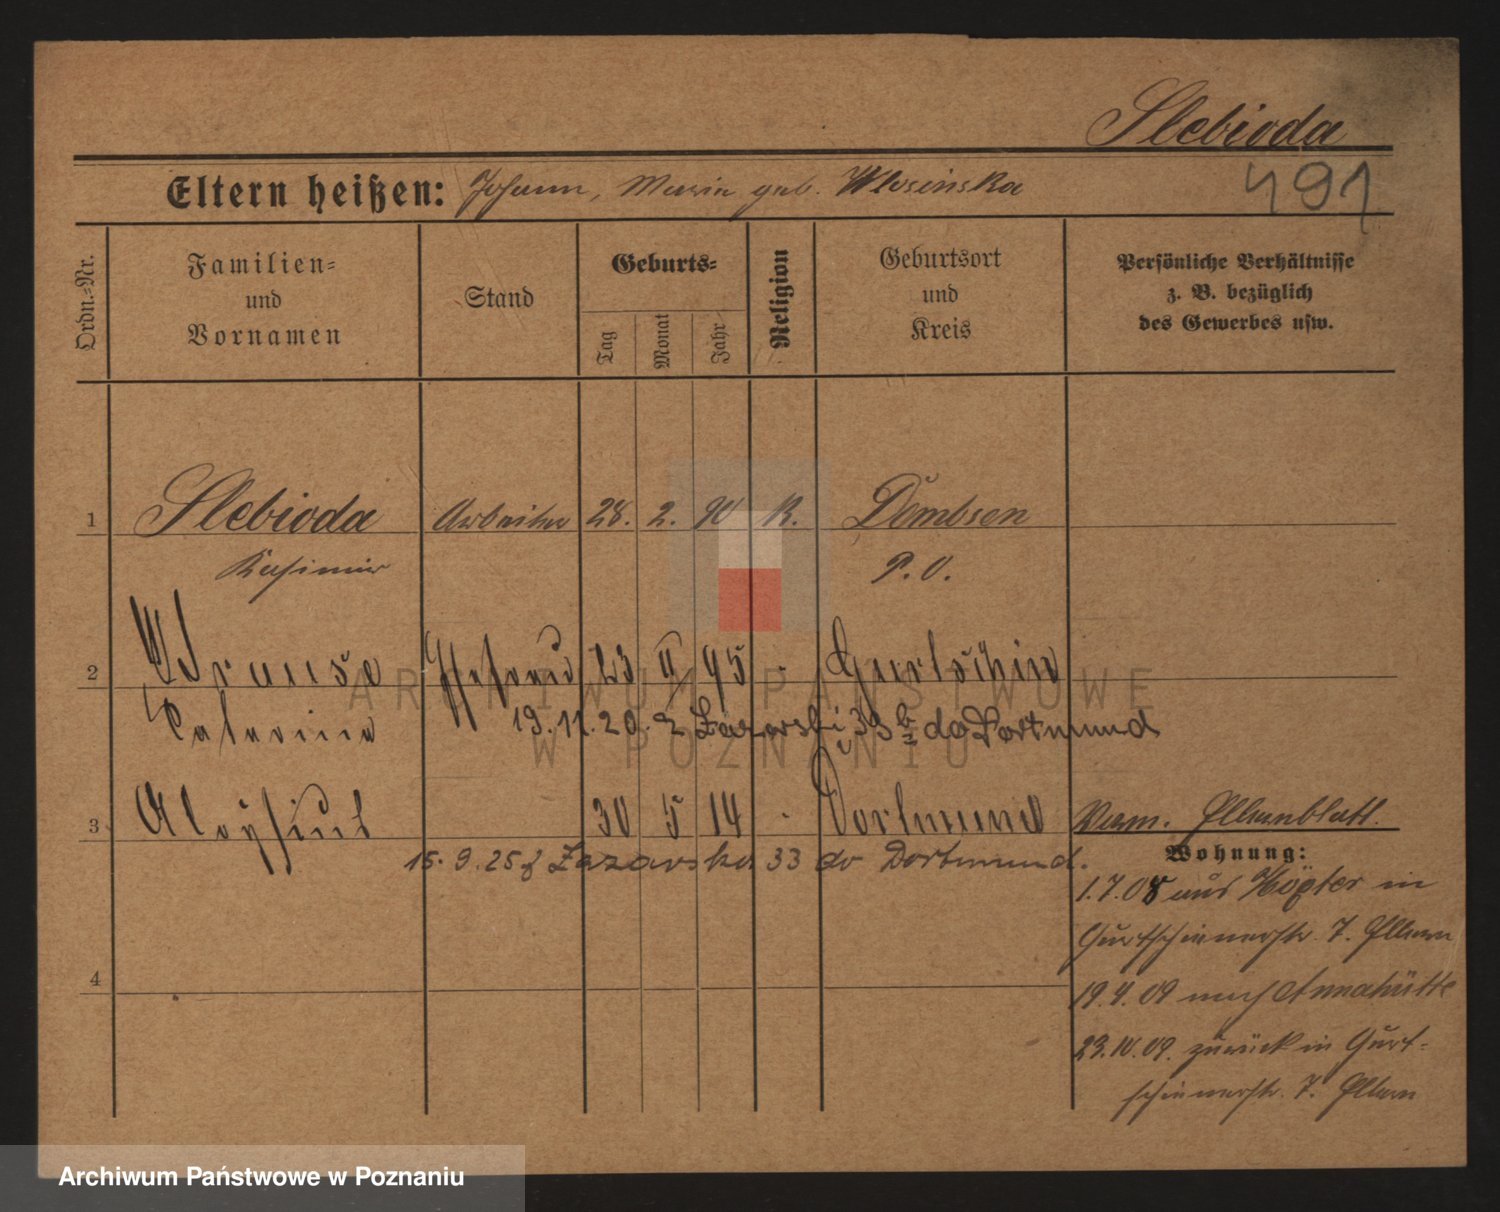 Slebioda
Eltern heißen: Johann, Maria geb. Wlosinska
491
Ordn.=Nr.
Familien=
und
Vornamen
Stand
Geburts=
Tag
Monat
Jahr
Religion
Geburtsort
und
Kreis
Persönliche Verhältnisse
z. B. bezüglich
des Gewerbes usw.
1 Slebioda Arbeiter 28. 2. 90 K. Dembsen
Kasimir P. O.
2 Ehefrau 23 II 95 Gurtschin
19.11.20. z Łazarski 33 b do Dortmund
3 30 5 14 Dortmund
15.9.25 z Łazarska 33 do Dortmund.
4
Verm. Elternblatt.
Wohnung:
1.7.08 aus Höxter in
Gurtschinerstr. 7. Eltern
19.4.09 nach Annahütte
23.10.09. zurück in Gurt-
schinerstr. 7. Eltern
ARCHIWUM PAŃSTWOWE
W POZNANIU
Archiwum Państwowe w Poznaniu